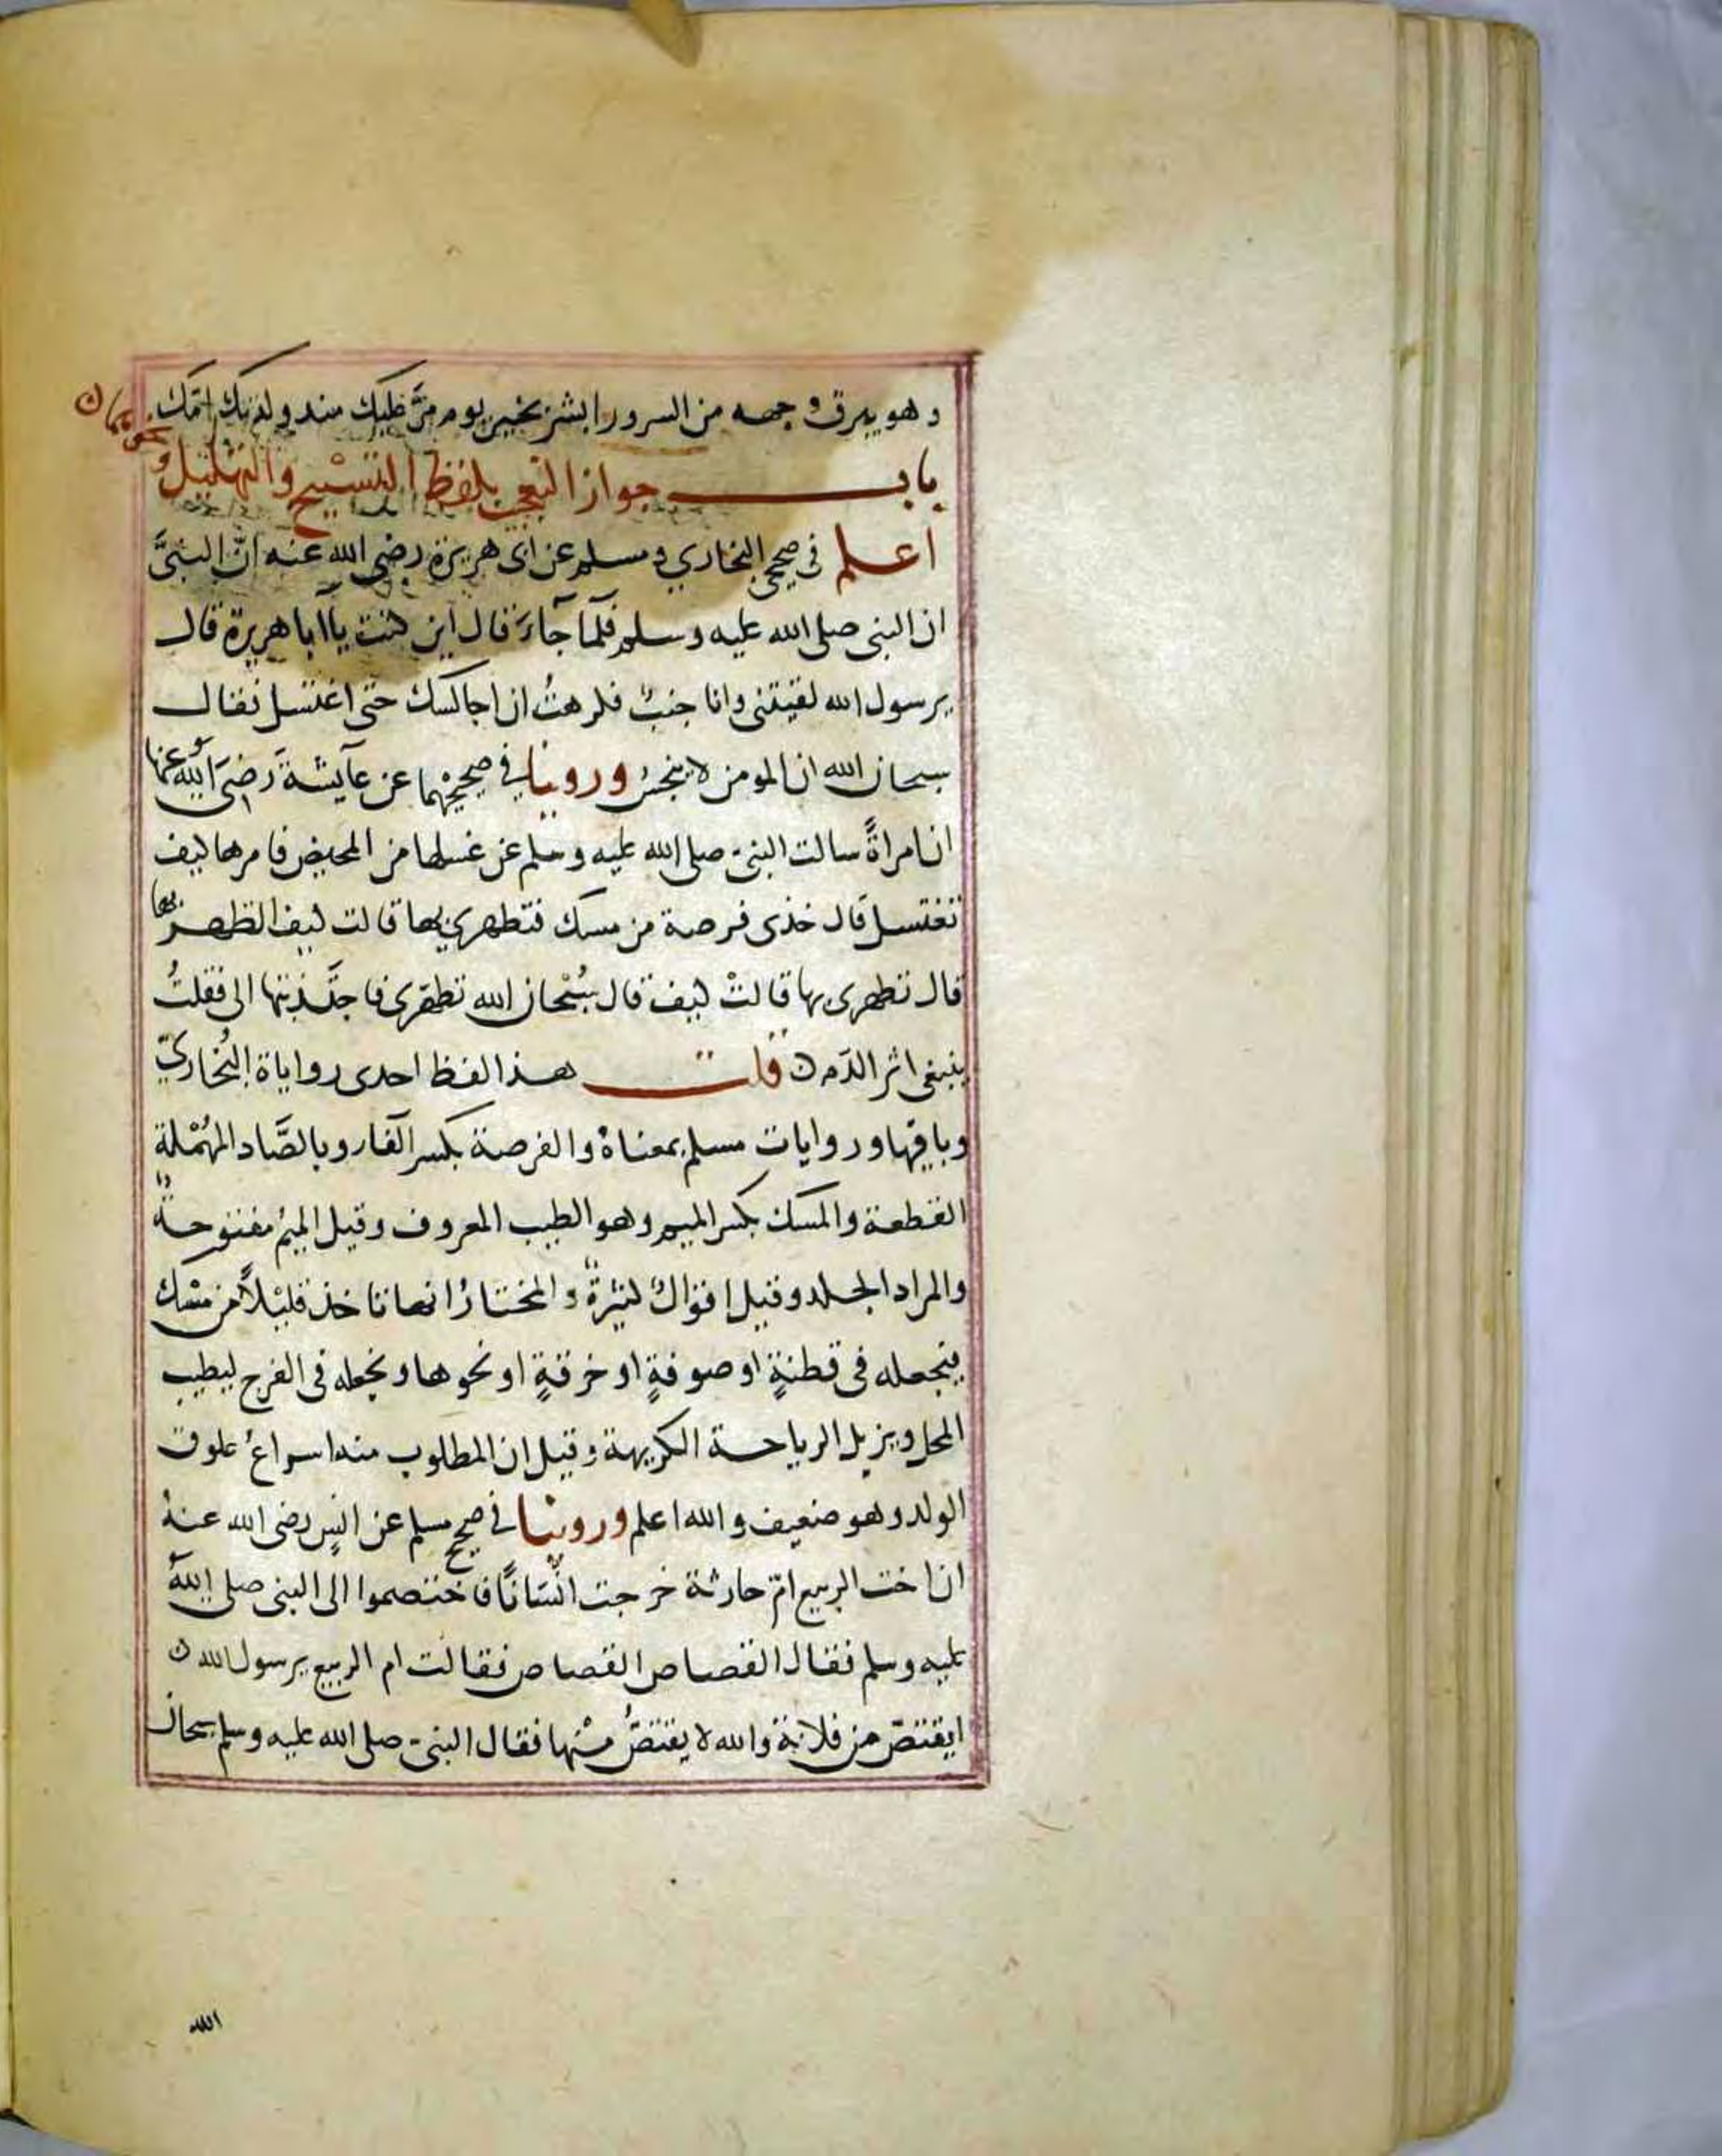 وهو يبرق وجهه من السرور ابشر بخير يوم مرَّ عليك منذ ولدتك امّك
باب جواز التعجب بلفظ التسبيح والتهليل و نحوهما ن
اعلم فى صحيحى البخاري ومسلم عن ابى هريرة رضى الله عنه انَّ النبىَّ
ان النبى صلى الله عليه وسلم فلمّا جآءَ قال اين كنت يآ ابا هريرة قال
يرسول الله لقيتنى وانا جنبٌ فكرهتُ ان اجالسك حتى اغتسل فقال
سبحان الله ان المومن لا ينجسُ وروينا في صحيحيْهما عن عآيشةَ رضىَ اللهُ عنها
ان امراةً سالت النبىّ صلى الله عليه وسلم عن غسلها من المحيض فامرها كيف
تغتسل قال خذى فرصة من مسك فتطهري بها قالت كيف اتطهر بها
قال تطهرى بها قالتْ كيف قال سُبْحان الله تطهّرى فاجتَذبتها الى فقلتُ
ينبغى اثر الدَم ن قلت هذا لفظ احدى رواياة البُخاريّ
وباقيها وروايات مسلم بمعناهُ والفرصة بكسر الفآر وبالصَّاد المهْملة
القطعة والمسك بكسر الميم وهو الطيب المعروف وقيل الميمُ مفتوحةٌ
والمراد الجلد وقيل اقوالٌ كثيرةٌ والمختارُ انها تاخذ قليْلاً من مسْك
فتجعله فى قطنةٍ او صوفةٍ او خرقةٍ او نحوها وتجعله فى الفرج ليطيب
المحل ويزيل الرياحة الكريهة وقيل ان المطلوب منه اسراعُ علوق
الولد وهو ضعيف والله اعلم وروينا في صحيح مسلم عن انسٍ رضى الله عنهُ
ان اخت الربيع امّ حارثة خرجت انْسَانًا فاختصموا الى النبى صلى اللهُ
عليه وسلم فقال القصاص القصاص فقالت ام الربيع يرسول الله ن
ايقتصّ من فلانة والله لا يقتصُّ منْها فقال النبىّ صلى الله عليه وسلم سبحان
الله